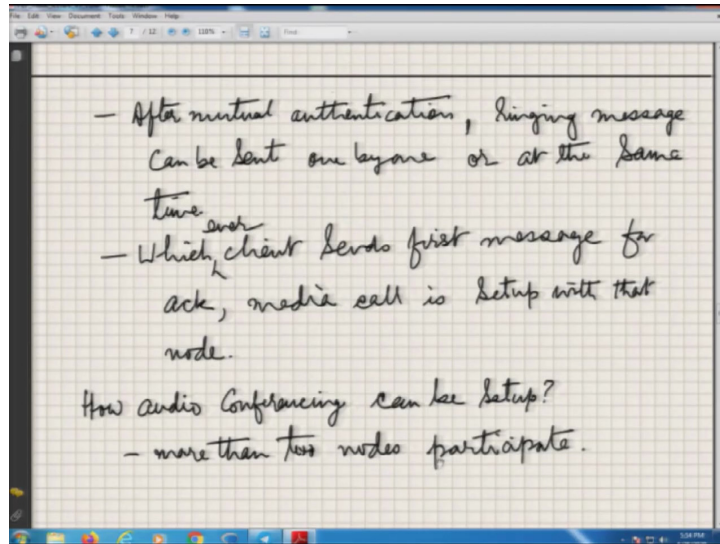 File Edit View Document Tools Window Help
7 / 12 110% Find
- After mutual authentication, ringing message
can be sent one by one or at the same
time
ever
- Which client sends first message for
ack, media call is setup with that
node.
How audio conferencing can be setup?
- more than two nodes participate.
5:04 PM